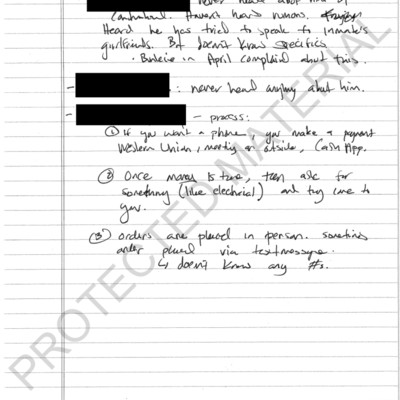 never heard about him w/
Contraband. Haven't heard rumors.
Heard he has tried to speak to inmate's
girlfriends. But doesn't know specifics
· Believe in April complained about this.
- : never heard anything about him.
- - process:
① If you want a phone, you make a payment
Western Union, meeting on outside, Cash App.
② Once money is there, then ask for
something (like electrical) and they come to
you.
③ orders are placed in person. sometimes
order placed via text message.
↳ doesn't know any #s.
PROTECTED MATERIAL